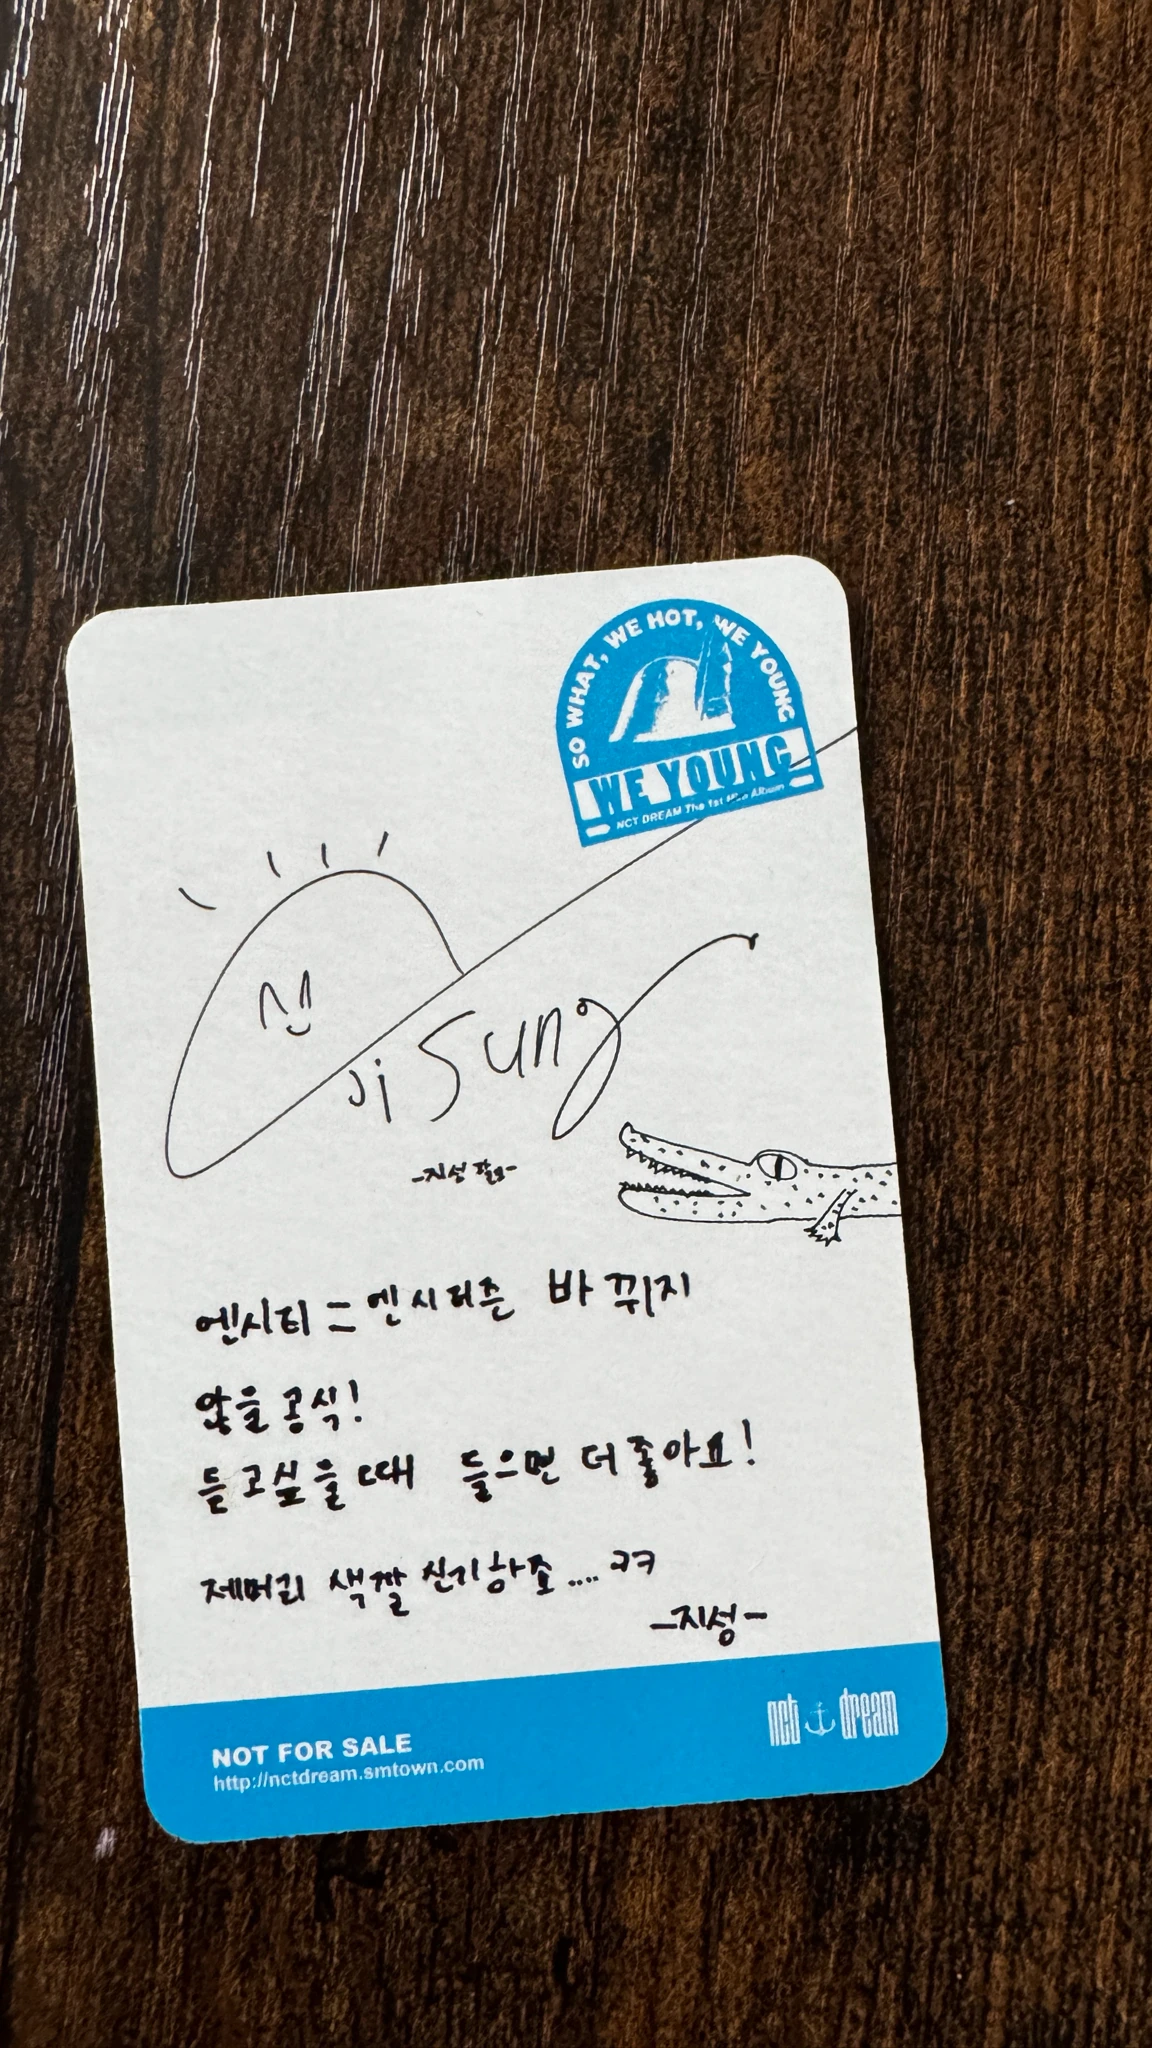 SO WHAT, WE HOT, WE YOUNG
WE YOUNG
NCT DREAM The 1st Mini Album
JiSung
엔시티 = 엔시티즌 바뀌지
않을 공식!
듣고싶을때 들으면 더좋아요!
제머리 색깔 신기하죠.... ㅋㅋ
-지성-
NOT FOR SALE
http://nctdream.smtown.com
nct dream